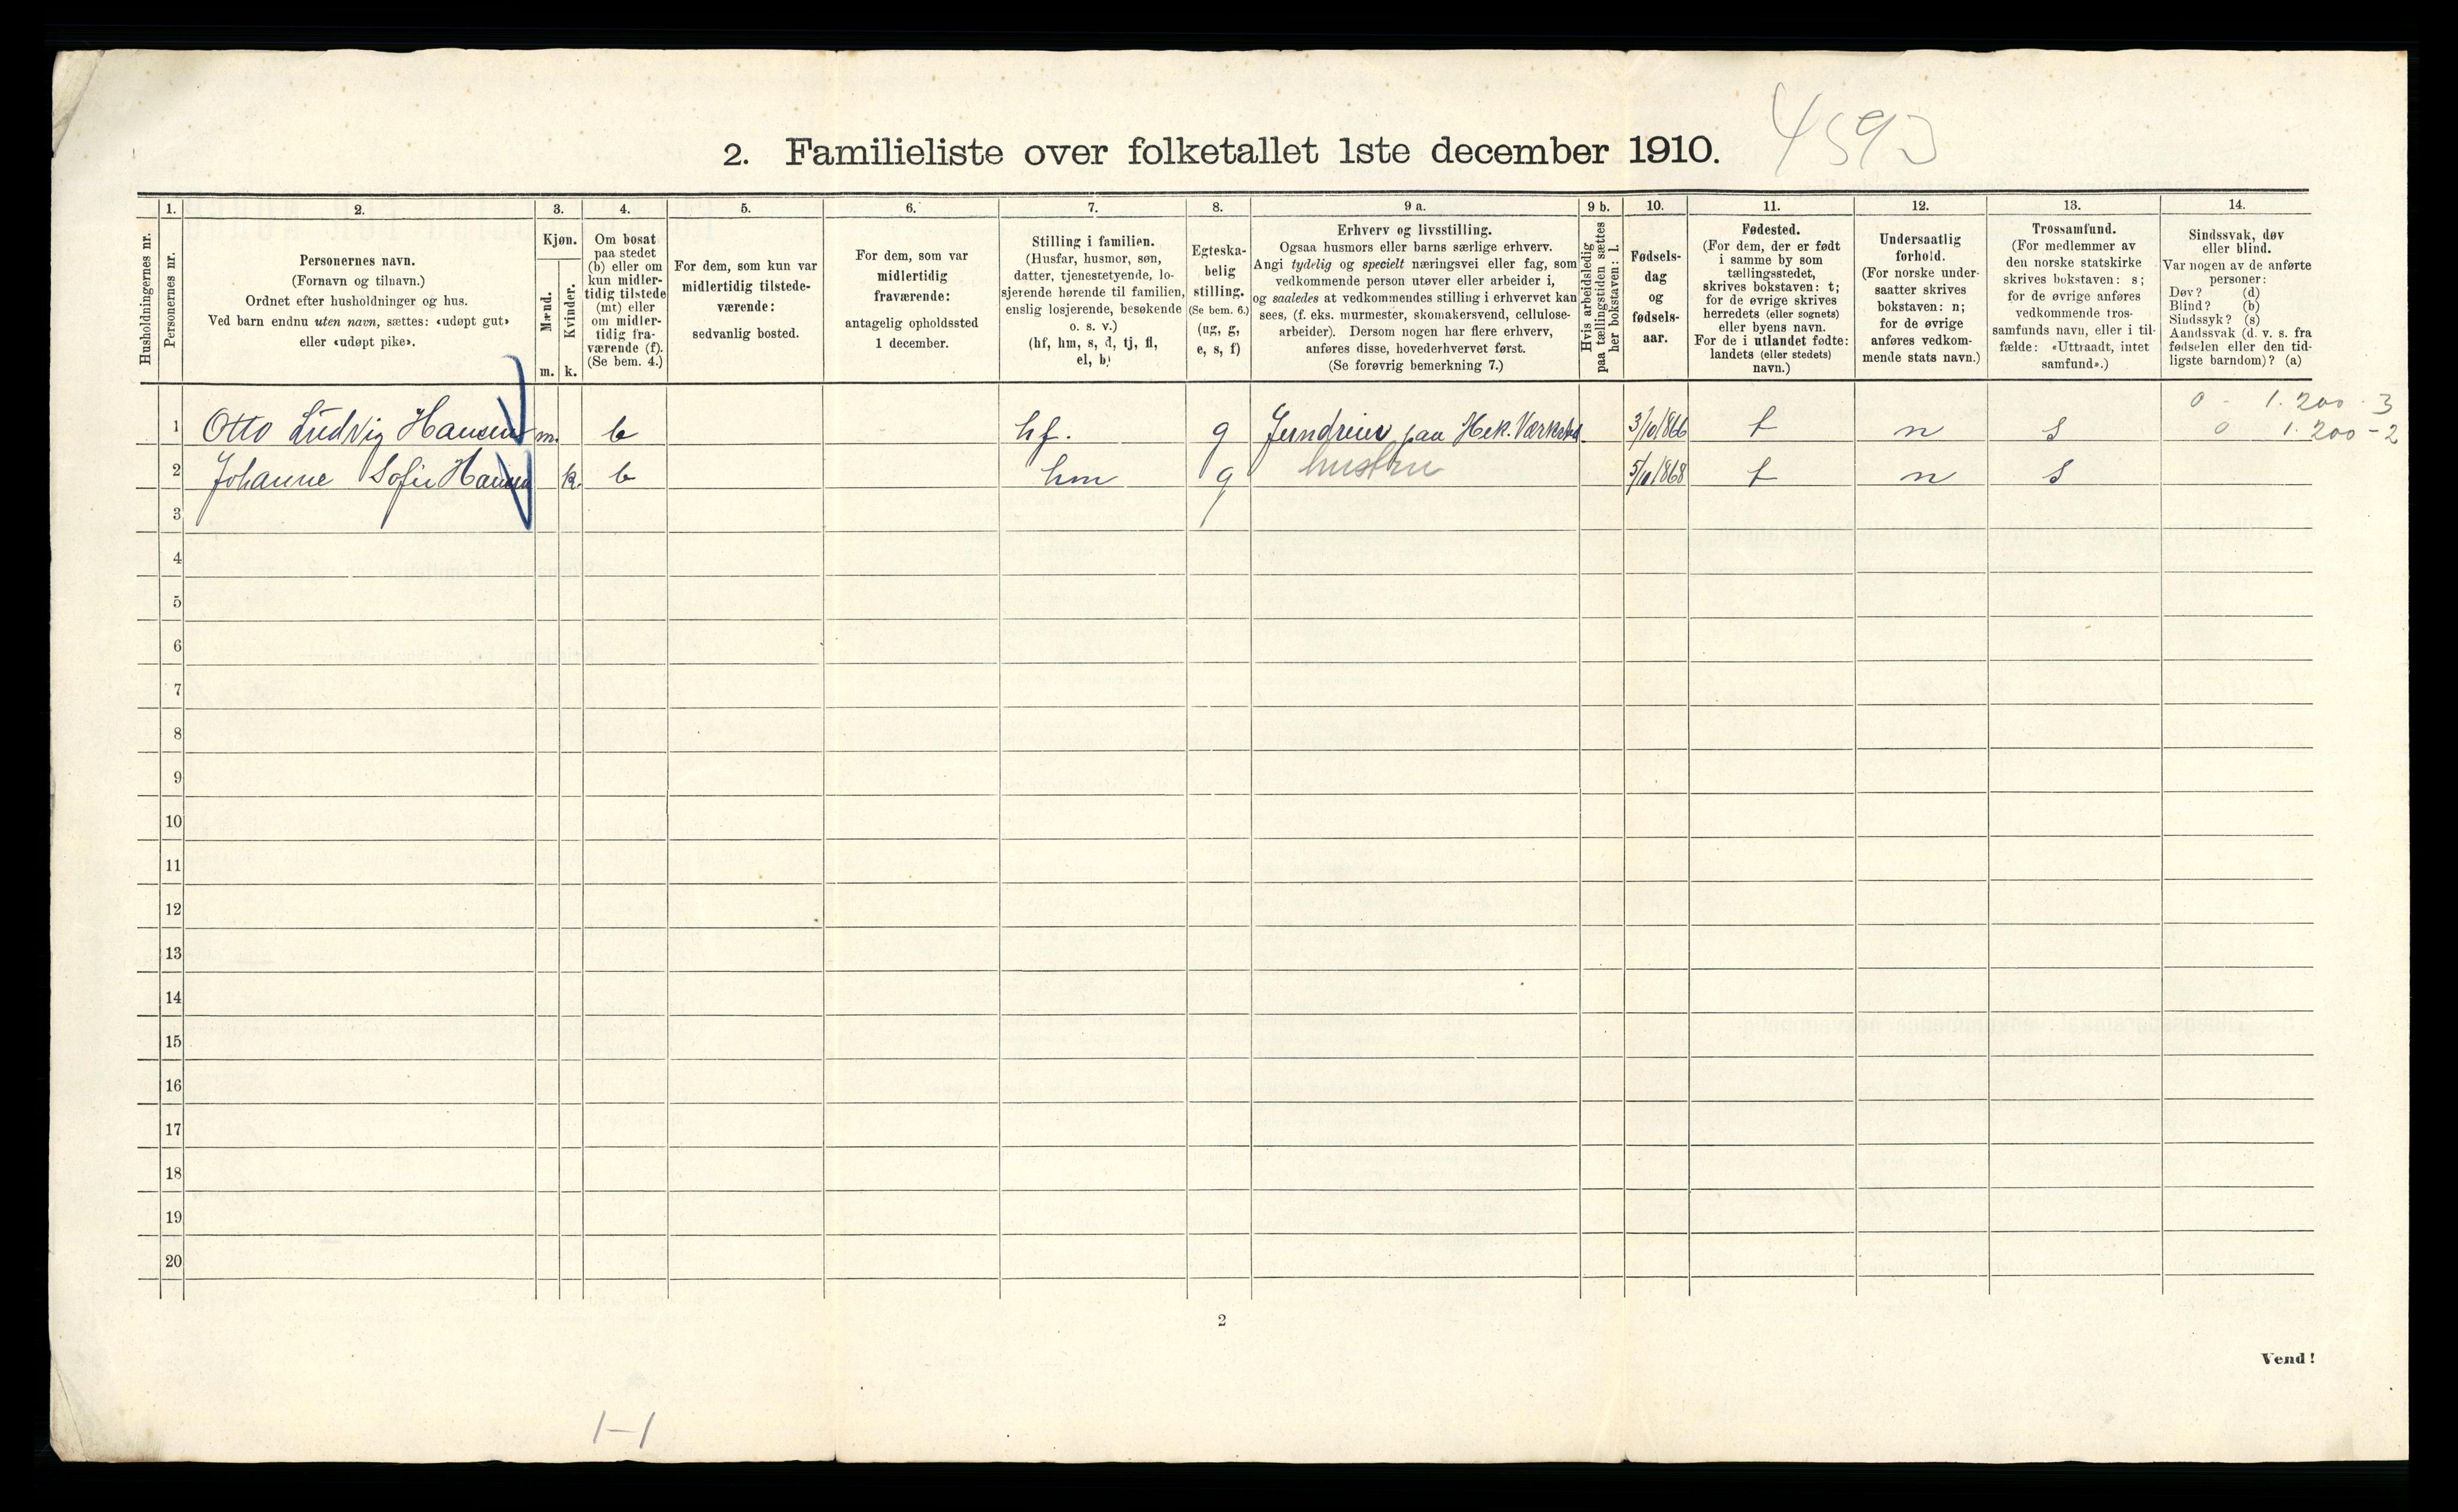 2. Familieliste over folketallet 1ste december 1910.
Husholdningernes nr.
1.
Personernes nr.
2.
Personernes navn.
(Fornavn og tilnavn.)
Ordnet efter husholdninger og hus.
Ved barn endnu uten navn, sættes: «udøpt gut»
eller «udøpt pike».
3.
Kjøn.
Mænd.
Kvinder.
m. k.
4.
Om bosat
paa stedet
(b) eller om
kun midler-
tidig tilstede
(mt) eller
om midler-
tidig fra-
værende (f).
(Se bem. 4.)
5.
For dem, som kun var
midlertidig tilstede-
værende:
sedvanlig bosted.
6.
For dem, som var
midlertidig
fraværende:
antagelig opholdssted
1 december.
7.
Stilling i familien.
(Husfar, husmor, søn,
datter, tjenestetyende, lo-
sjerende hørende til familien,
enslig losjerende, besøkende
o. s. v.)
(hf, hm, s, d, tj, fl,
el, b)
8.
Egteska-
belig
stilling.
(Se bem. 6.)
(ug, g,
e, s, f)
9 a.
Erhverv og livsstilling.
Ogsaa husmors eller barns særlige erhverv.
Angi tydelig og specielt næringsvei eller fag, som
vedkommende person utøver eller arbeider i,
og saaledes at vedkommendes stilling i erhvervet kan
sees, (f. eks. murmester, skomakersvend, cellulose-
arbeider). Dersom nogen har flere erhverv,
anføres disse, hovederhvervet først.
(Se forøvrig bemerkning 7.)
9 b.
Hvis arbeidsledig
paa tællingstiden sættes
her bokstaven: l.
10.
Fødsels-
dag
og
fødsels-
aar.
11.
Fødested.
(For dem, der er født
i samme by som
tællingsstedet,
skrives bokstaven: t;
for de øvrige skrives
herredets (eller sognets)
eller byens navn.
For de i utlandet fødte:
landets (eller stedets)
navn.)
12.
Undersaatlig
forhold.
(For norske under-
saatter skrives
bokstaven: n;
for de øvrige
anføres vedkom-
mende stats navn.)
13.
Trossamfund.
(For medlemmer av
den norske statskirke
skrives bokstaven: s;
for de øvrige anføres
vedkommende tros-
samfunds navn, eller i til-
fælde: «Uttraadt, intet
samfund».)
14.
Sindssvak, døv
eller blind.
Var nogen av de anførte
personer:
Døv? (d)
Blind? (b)
Sindssyk? (s)
Aandssvak (d. v. s. fra
fødselen eller den tid-
ligste barndom)? (a)
0 - 1.200 . 3
1 Otto Ludvig Hansen m. b hf. g Jerndreier paa Mek. Værksted. 3/10 1866 t n s 0 1.200 - 2
2 Johanne Sofie Hansen k. b hm g hustru 5/10 1868 t n s
3
4
5
6
7
8
9
10
11
12
13
14
15
16
17
18
19
20
2
Vend!
1-1